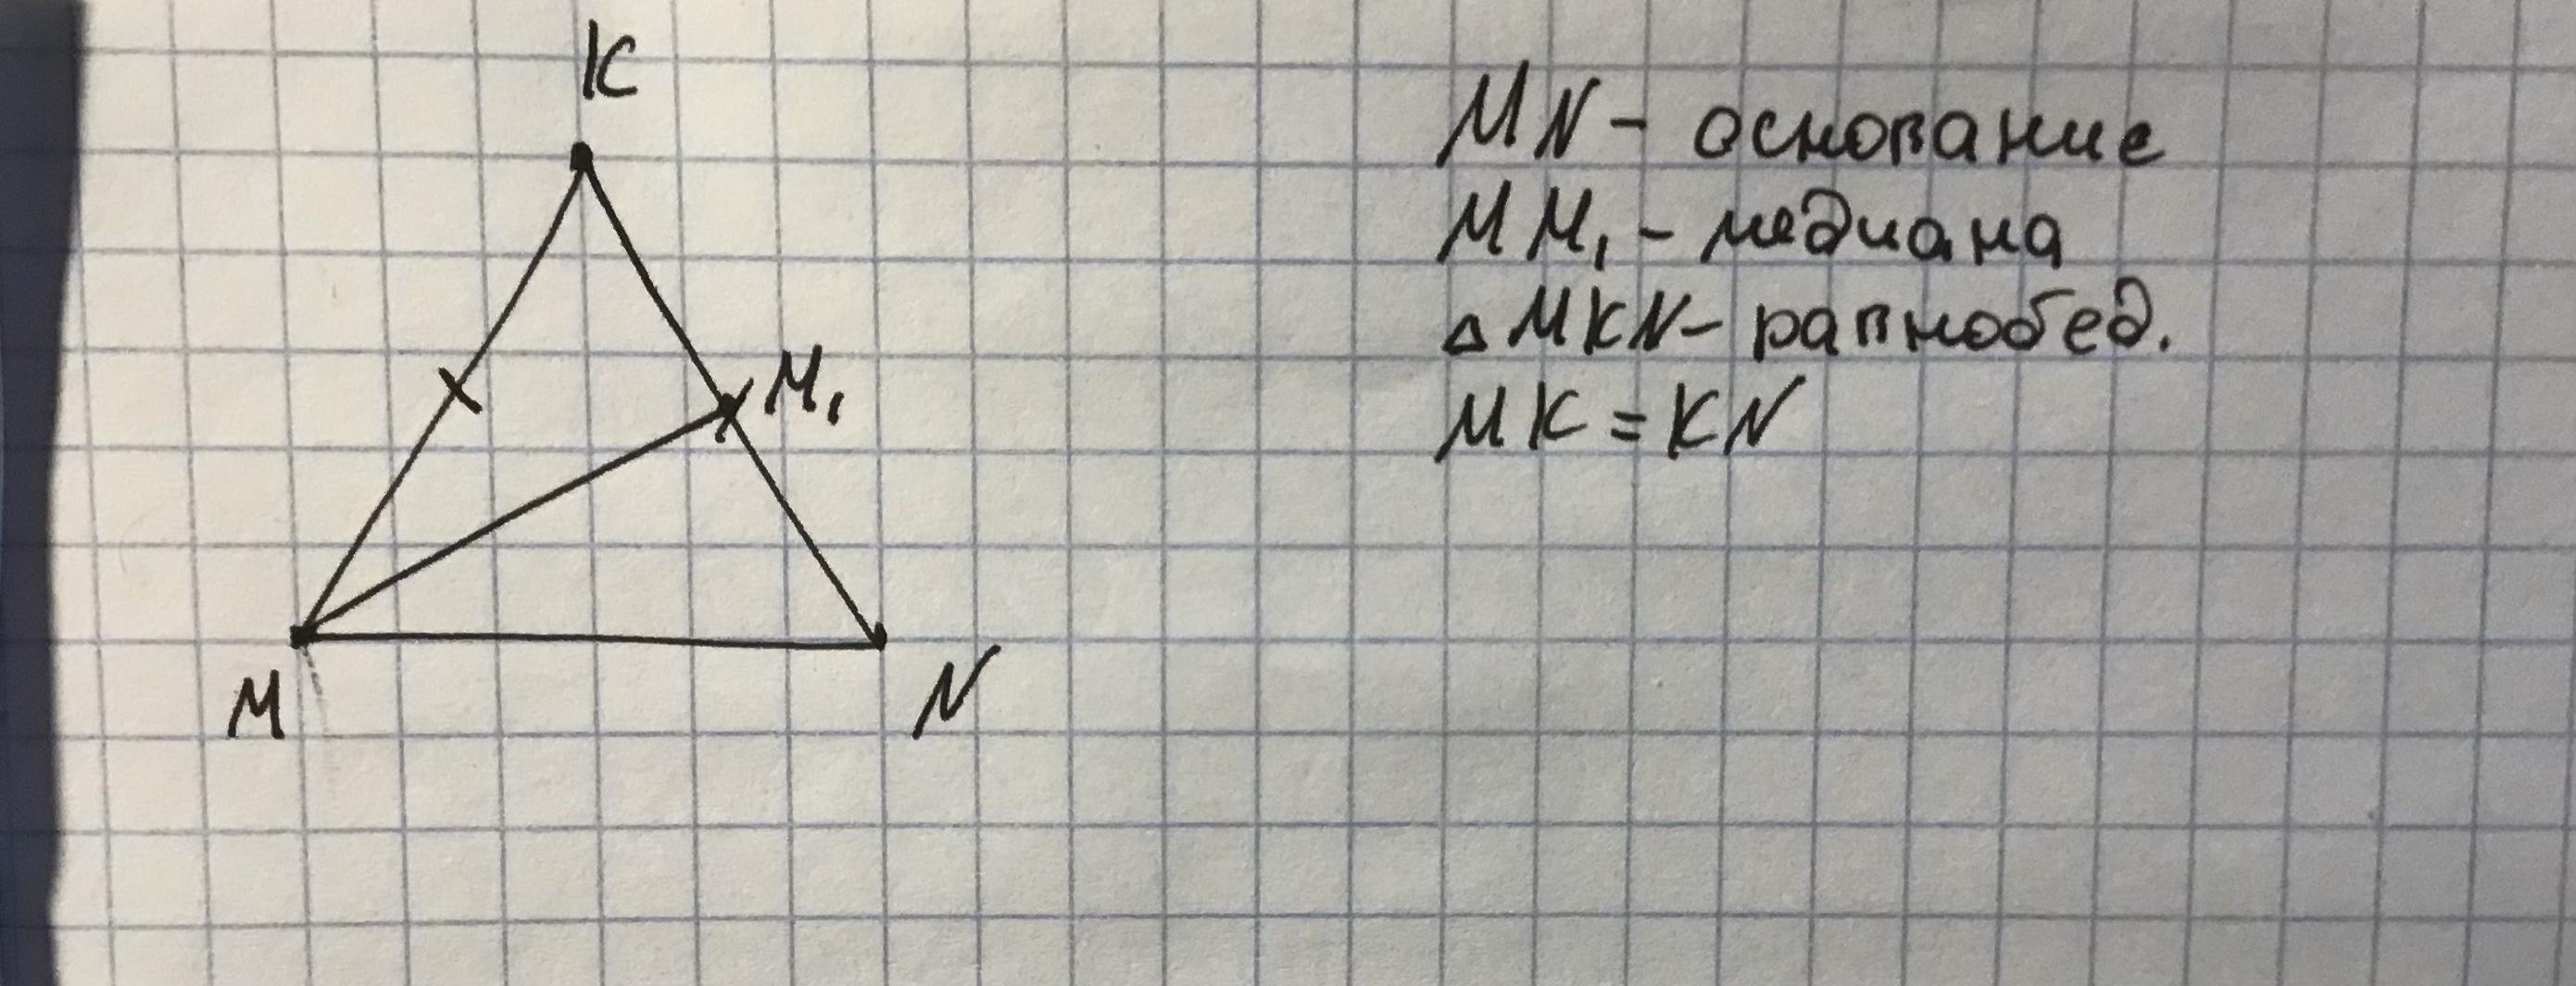 K
M₁
M
N
MN - основание
MM₁ - медиана
△MKN - равнобед.
MK = KN